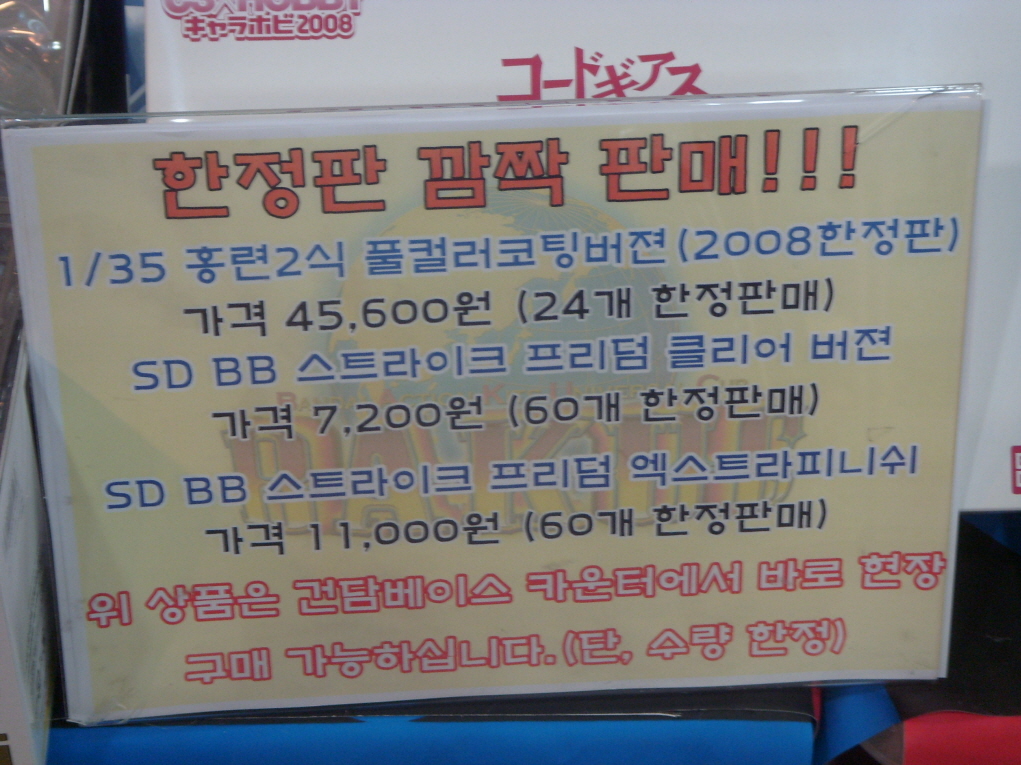 C3×HOBBY
キャラホビ2008
コードギアス
한정판 깜짝 판매!!!
1/35 홍련2식 풀컬러코팅버젼(2008한정판)
가격 45,600원 (24개 한정판매)
SD BB 스트라이크 프리덤 클리어 버젼
가격 7,200원 (60개 한정판매)
SD BB 스트라이크 프리덤 엑스트라피니쉬
가격 11,000원 (60개 한정판매)
위 상품은 건담베이스 카운터에서 바로 현장
구매 가능하십니다.(단, 수량 한정)